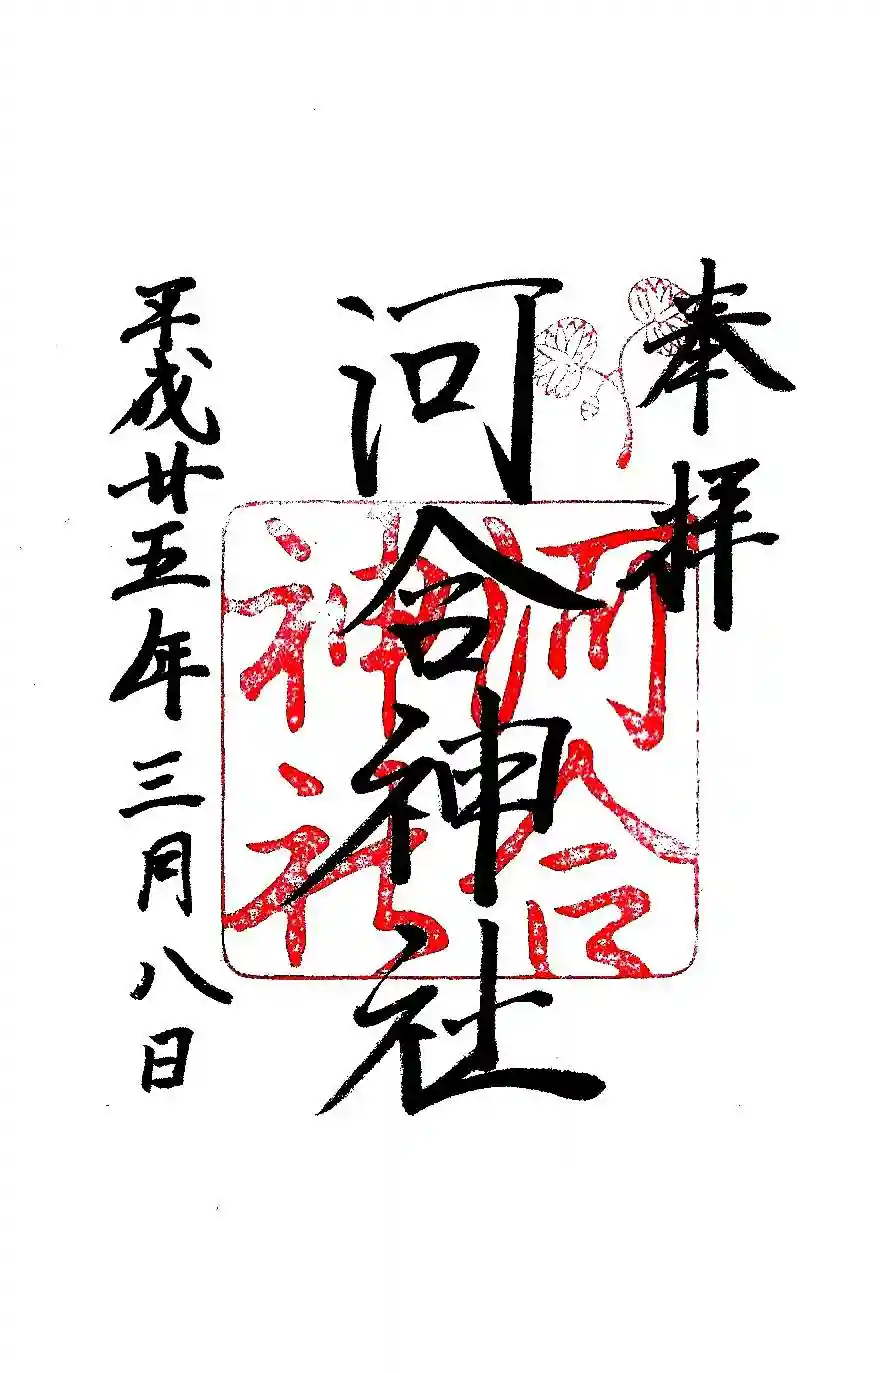 奉拝
河合神社
河合
神社
平成廿五年三月八日